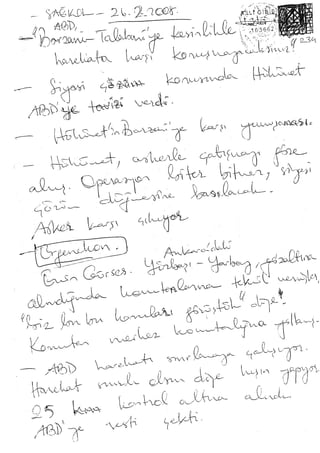 - SAĞKOL - 26.2.2008.
ABD.
- "Barzani Talabani'ye kesinlikle
harekata karşı konuşmayacaksınız"
234
- Siyasi çözüm konusunda Hükümet
ABD'ye tavizi verdi.
- Hükümet'in Barzani'ye karşı yumuşaması.
- Hükümet, askerle çatışmayı göze
almış. Operasyon biter bitmez, siyasi
çözüm düğmesine basılacak.
Asker karşı çıkıyor
- Ergenekon.
Ankara'daki
Ersin Gürses. Yüzbaşı - Yarbay, gözaltına
alındığında komutanlarına tekmil vermişler,
"biz bu konuları görüştük" diye.
Komutan merkez komutanlığına
- ABD harekatı sınırlamaya çalışıyor.
Harekat sınırlı olsun diye baskı yapıyor.
25 km kontrol altına alındı
ABD'ye resti çekti.